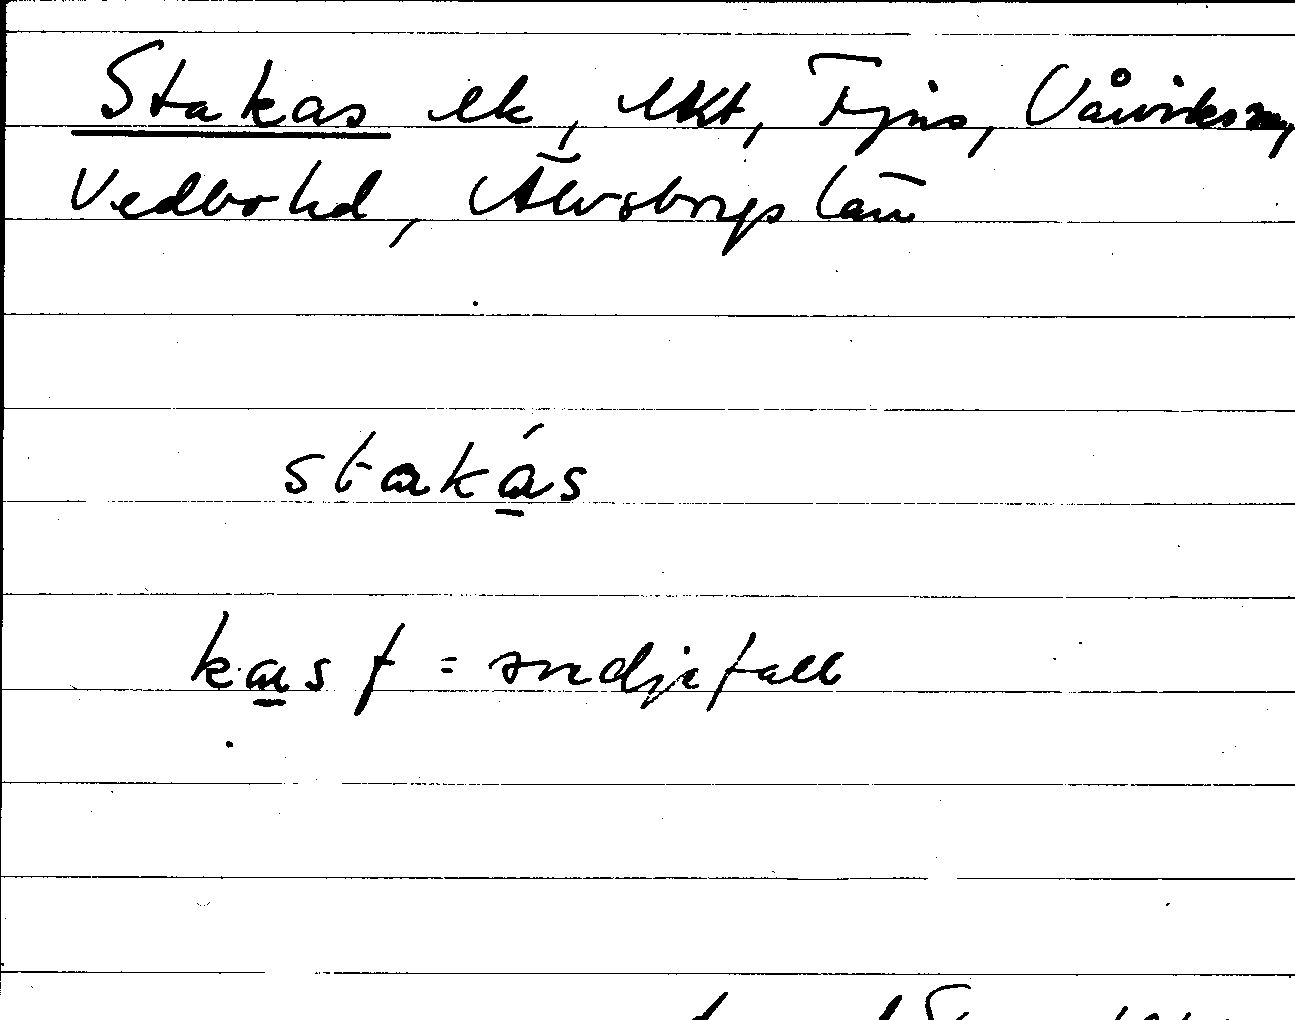 Stakas ek, EKbl, Fjus, Vårviks sn,
Vedbo hd, Älvsborgs län
stakás
kas f = snedjefall